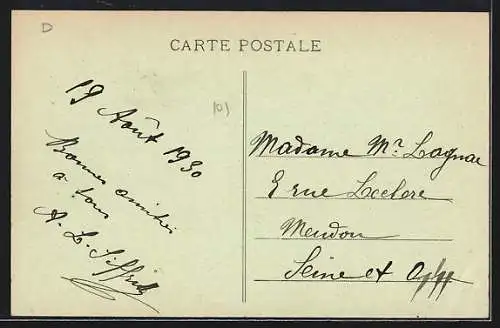 D
CARTE POSTALE
19 Août 1930
Bonnes amitiés
à tous
A. L. Siffrid
Madame Mr Lagnac
rue Leclerc
Meudon
Seine et